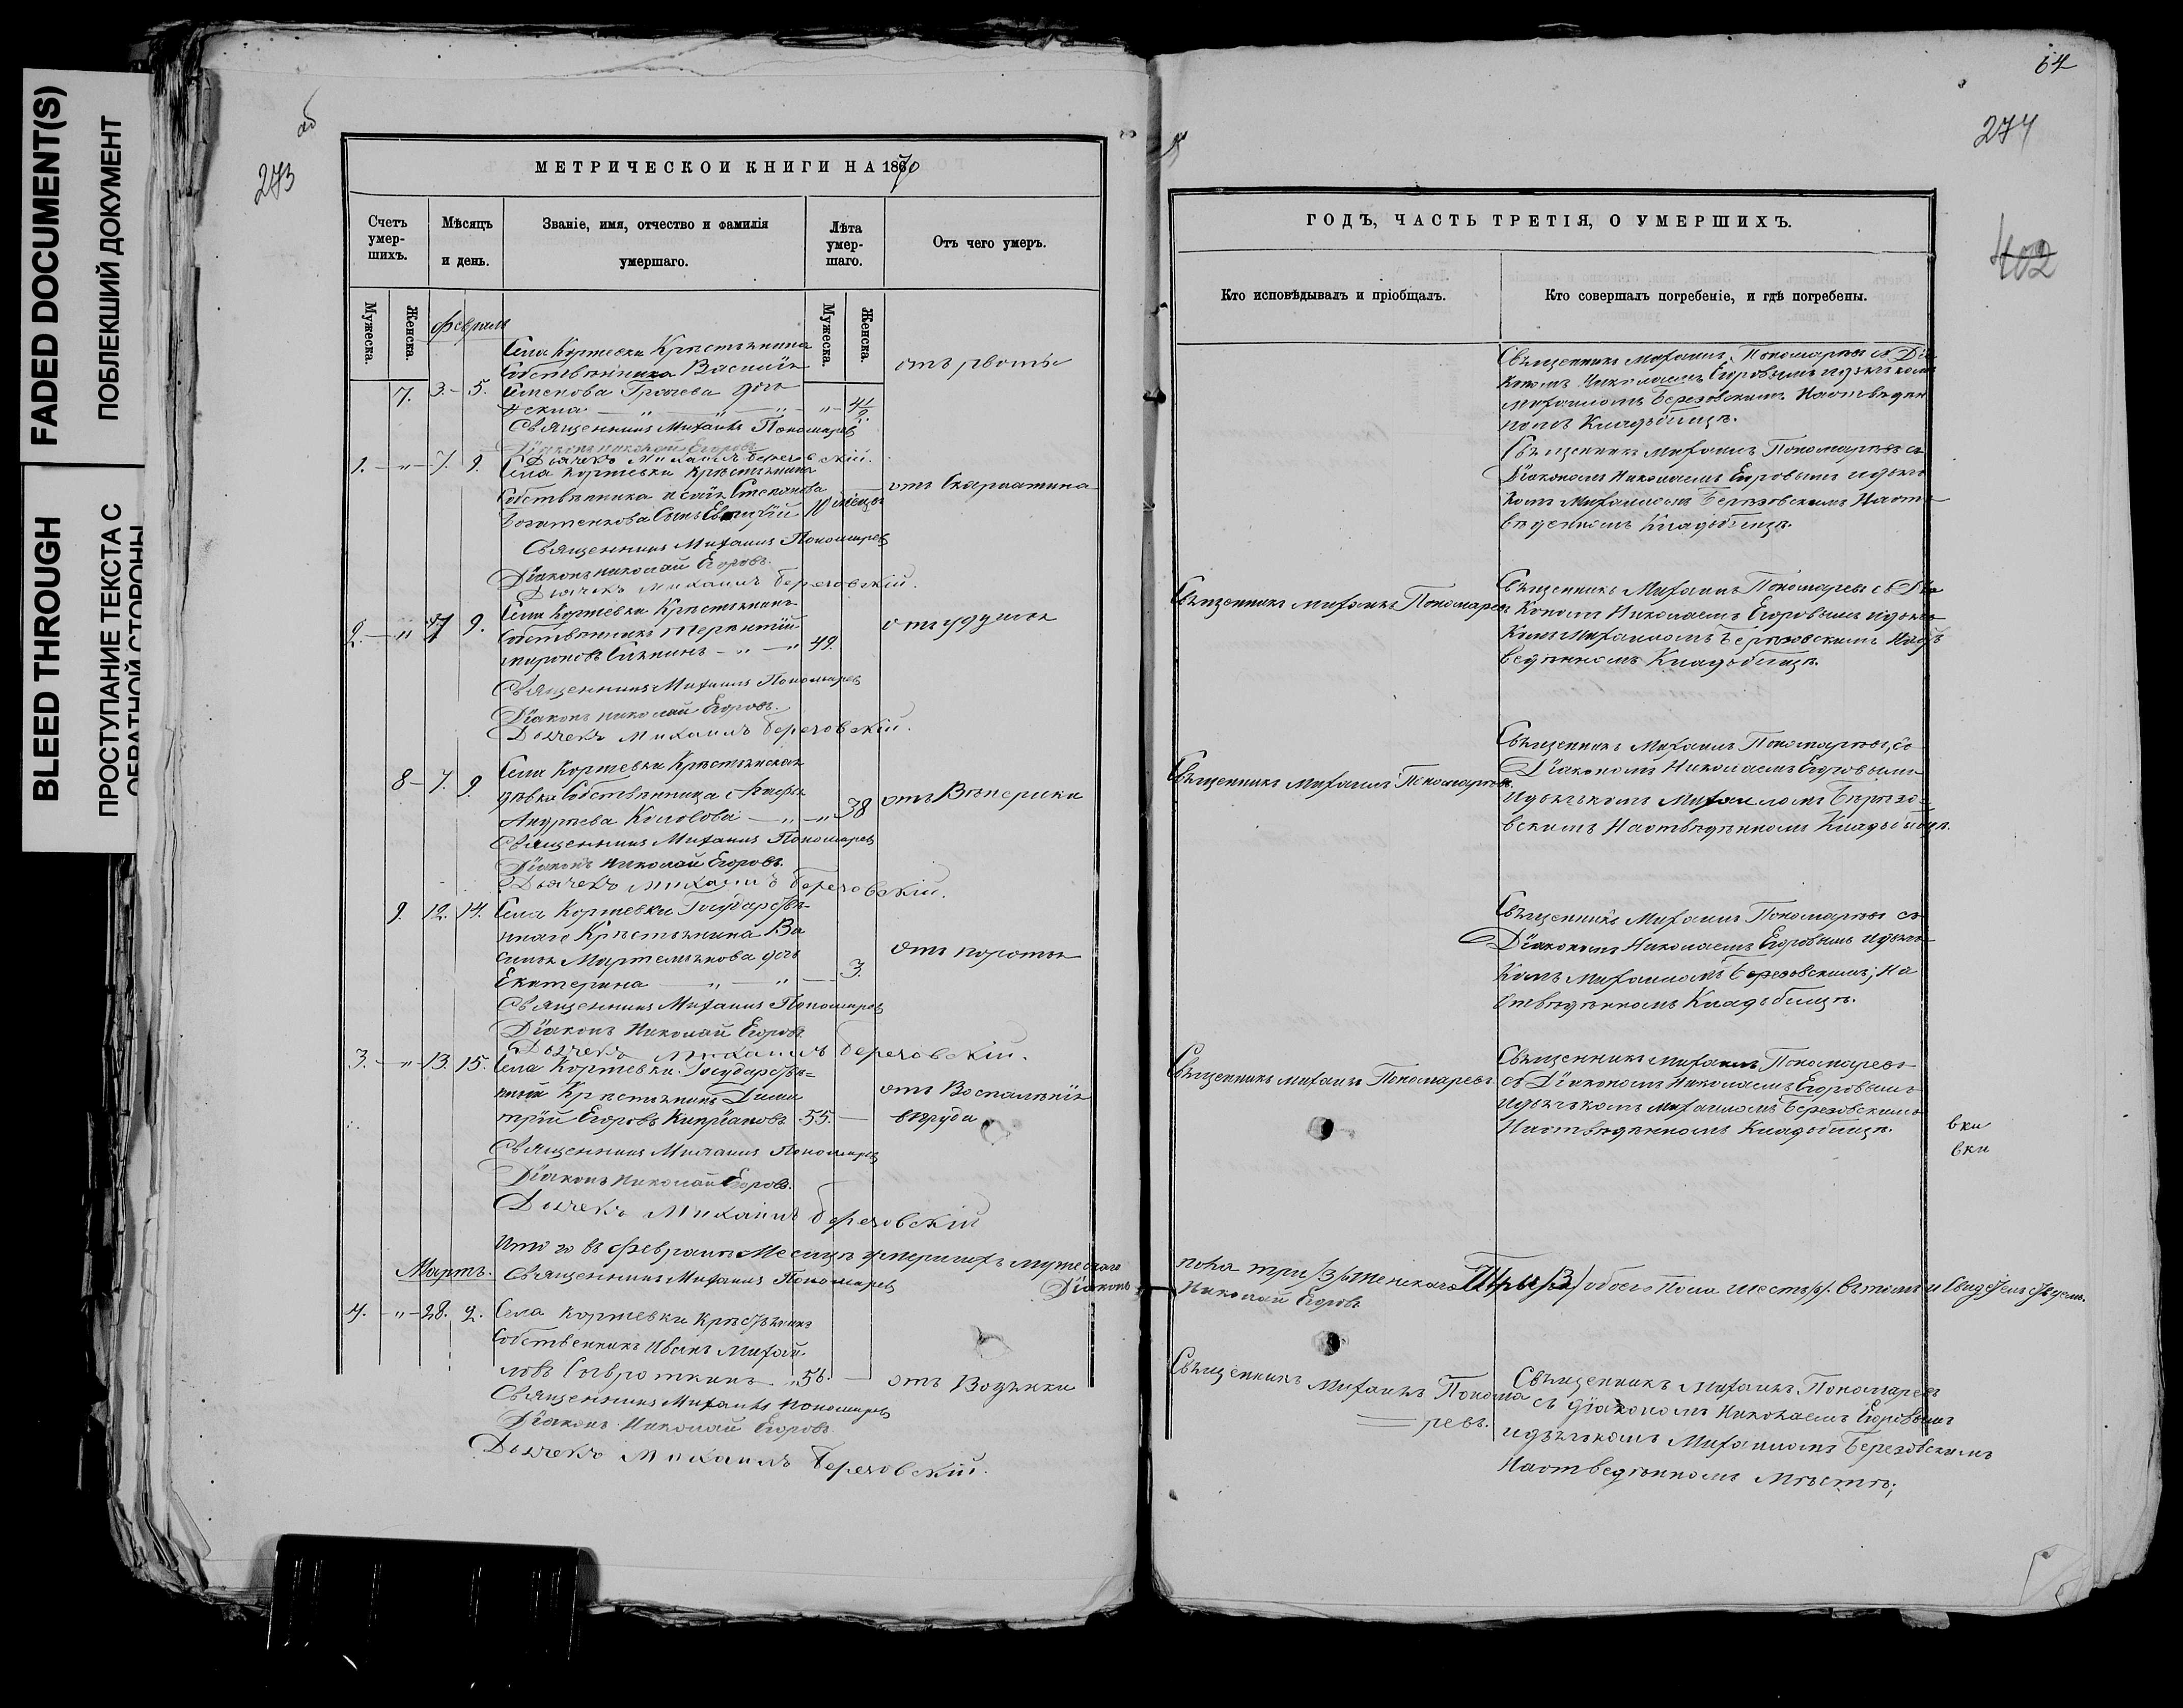 FADED DOCUMENT(S)
ПОБЛЕКШИЙ ДОКУМЕНТ
BLEED THROUGH
ПРОСТУПАНИЕ ТЕКСТА С
ОБРАТНОЙ СТОРОНЫ
об
273
МЕТРИЧЕСКОЙ КНИГИ НА 1870
Счетъ умер-шихъ.
Мѣсяцъ и день.
Званіе, имя, отчество и фамилія умершаго.
Лѣта умер-шаго.
Отъ чего умеръ.
Мужеска.
Женска.
Мужеска.
Женска.
Февраль
Села Кортевки Крестьянина
Собственника Василія
7. 3. – 5. Степанова Грачева дочь
отъ рвоты
Священникъ Михаилъ Пономаревъ
Діаконъ Николай Егоровъ
Дьячекъ Михаилъ Березовскій.
1. – „ – 7. 9. Села Кортевки Крестьянина
Собственника Исаія Степанова
сынъ 10 месецъ
отъ Скарлатина
Священникъ Михаилъ Пономаревъ
Діаконъ Николай Егоровъ.
Дьячекъ Михаилъ Березовскій.
2. – „ 7 9. Села Кортевки Крестьянинъ
Собственникъ Терентій
Мироновъ – „ – „ 49.
отъ удушья
Священникъ Михаилъ Пономаревъ
Діаконъ Николай Егоровъ.
Дьячекъ Михаилъ Березовскій.
8 – 7. 9. Села Кортевки Крестьянская
девка Собственница
Андреева Козлова – „ – „ 38
отъ Венерики
Священникъ Михаилъ Пономаревъ
Діаконъ Николай Егоровъ.
Дьячекъ Михаилъ Березовскій.
9. 12. 14. Села Кортевки Государстве-
ннаго Крестьянина Ва
силья Мартемьянова дочь
Екатерина – „ – „ – 3.
отъ короты
Священникъ Михаилъ Пономаревъ
Діаконъ Николай Егоровъ
Дьячекъ Михаилъ Березовскій.
3. – „ – 13. 15. Села Кортевки Государстве=
нный Крестьянинъ Дими
трій Егоровъ Кипріановъ 55. –
отъ Воспаленія
въ груди
Священникъ Михаилъ Пономаревъ
Діаконъ Николай Егоровъ.
Дьячекъ Михаилъ Березовскій
Итого въ Феврале Месяце умершихъ мужескаго
Мартъ.
Священникъ Михаилъ Пономаревъ
Діаконъ
4. – „ – 28. 2. Села Кортевки Крестьянинъ
Собственникъ Иванъ Михай-
ловъ „ 56. –
отъ Водянки
Священникъ Михаилъ Пономаревъ
Діаконъ Николай Егоровъ.
Дьячекъ Михаилъ Березовскій.
64
274
402
ГОДЪ, ЧАСТЬ ТРЕТІЯ, О УМЕРШИХЪ.
Кто исповѣдывалъ и пріобщалъ.
Кто совершалъ погребеніе, и гдѣ погребены.
Священникъ Михаилъ Пономаревъ съ Діа
кономъ Николаемъ Егоровымъ и дьячкомъ
Михаиломъ Березовскимъ На отведен
номъ Кладбище.
Священникъ Михаилъ Пономаревъ съ
Діакономъ Николаемъ Егоровымъ и дьяч
комъ Михаиломъ Березовскимъ На от-
веденномъ Кладбище.
Священникъ Михаилъ Пономаревъ
Священникъ Михаилъ Пономаревъ съ Діа
кономъ Николаемъ Егоровымъ и дьяч
комъ Михаиломъ Березовскимъ
веденномъ Кладбище.
Священникъ Михаилъ Пономаревъ
Священникъ Михаилъ Пономаревъ, съ
Діакономъ Николаемъ Егоровымъ
и дьячкомъ Михаиломъ Березо-
вскимъ На отведенномъ Кладбище.
Священникъ Михаилъ Пономаревъ съ
Діакономъ Николаемъ Егоровымъ и дьяч-
комъ Михаиломъ Березовскимъ, На
отведенномъ Кладбище.
Священникъ Михаилъ Пономаревъ
Священникъ Михаилъ Пономаревъ
съ Діакономъ Николаемъ Егоровымъ
и дьячкомъ Михаиломъ Березовскимъ
На отведенномъ Кладбище.
вки
вки
пола три /3/ женскаго Три /3/ обоего пола шесть /6/. Въ томъ и свидетельствуемъ.
Николай Егоровъ
Священникъ Михаилъ Понома
=ревъ.
Священникъ Михаилъ Пономаревъ
съ діакономъ Николаемъ Егоровымъ
и дьячкомъ Михаиломъ Березовскимъ
На отведенномъ Месте;